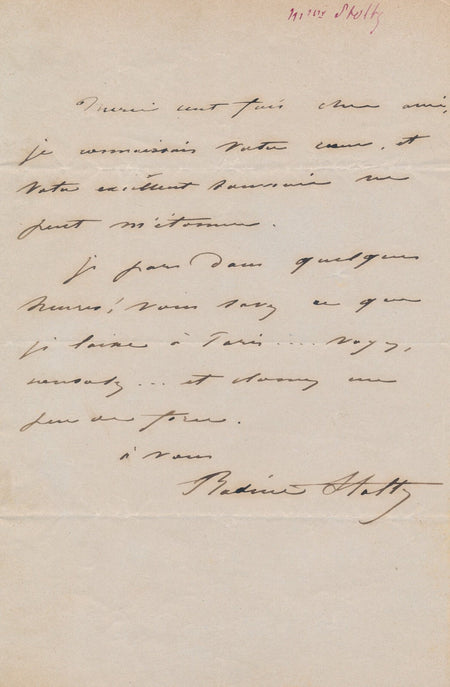 mme Stoltz
Merci cent fois cher ami,
je connaissais votre cœur, et
votre excellent souvenir ne
peut m'étonner.
je pars dans quelques
heures! vous savez ce que
je laisse à Paris .... voyez,
consolez ... et donnez un
peu de force.
à vous
Rosine Stoltz